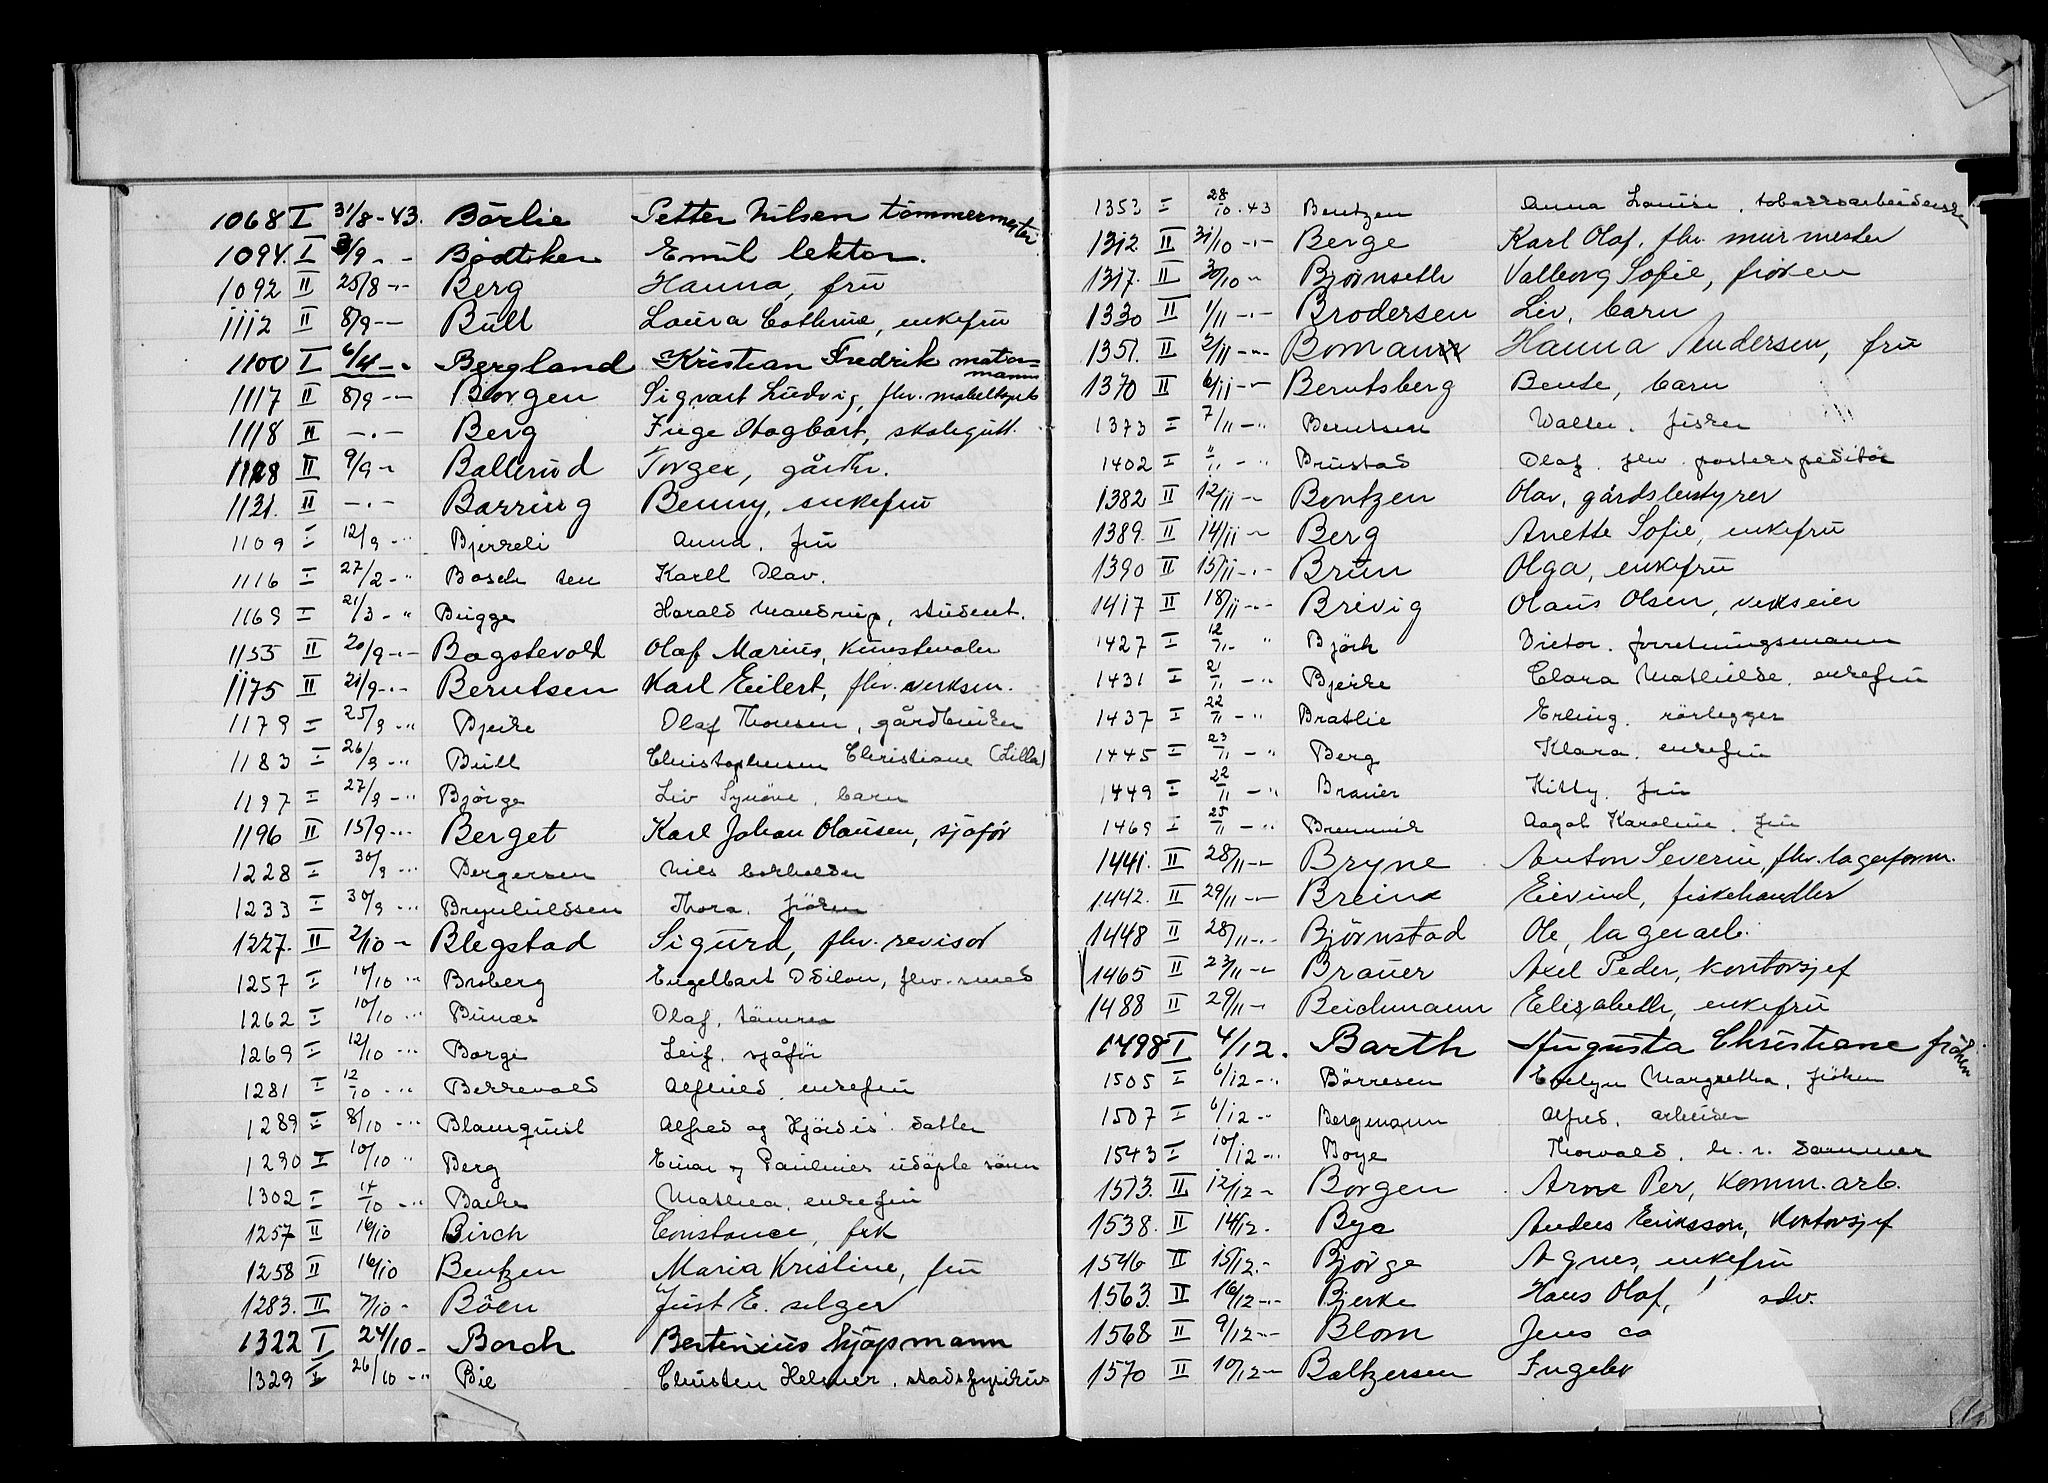 1068 I 31/8-43. Börlie Petter Nilsen tömmermester
1094. I 3/9 - - Bödtker Emil lektor.
1092 II 25/8 -.- Berg Hanna, fru
1112 II 8/9 -.- Bull Laura Cathrine, enkefru
1100 I 6/4 - - Bergland Kristian Fredrik
1117 II 8/9 -.- Borgen Sigvart Ludvig, fhv.
1118 II -.- Berg Inge Dagbart, skolegutt.
1128 II 9/9 - Ballerud Torger, gårdbr.
1131. II -.- Barring Benny, enkefru
1109 I 12/9 - " Bjerkeli Anna, fru
1116 I 27/2 - " Bosch ten Karll Olav.
1169 I 21/3 - " Brigge Harald Mandrup, student.
1153 II 20/9 -.- Bogstevold Olaf Marius, kunstmaler
1175 II 21/9 -.- Berntsen Karl Eilert, fhv. verksm.
1179 I 25/9 - " Bjerke Olaf Thoresen, gårdbruker
1183 I 26/9 - " Bull Christophersen Christiane (Lilla)
1197 I 27/9 - " Bjørge Liv Synöve, barn
1196 II 15/9 -.- Berget Karl Johan Olausen, sjåfør
1228 I 30/9 - " Bergersen Nils
1233 I 30/9 - " Brynhildsen Thora, fröken
1227. II 2/10 - Blegstad Sigurd, fhv. revisor
1257 I 10/10 - " Broberg Engelbart Odilon, fhv. smed
1262 I 10/10 - " Olaf, tömrer
1269 I 12/10 - " Borge Leif, sjåför
1281 I 12/10 - " Berrevold Alfhild, enkefru
1289 I 8/10 - " Blomquist Alfred og Hjördis' datter
1290 I 10/10 " Berg Einar og Paulines udöpte sönn
1302 I 14/10 - " Backe Mathea, enkefru
1257 II 16/10 Birch Constance, frk
1258 II 16/10 Bentzen Maria Kristine, fru
1283. II 7/10 - Böen Just E. selger
1322 I 24/10 - Borch Bertinius kjöpmann
1329 I 26/10 - " Bie Christen Helmer, stadsfysikus
1353 I 28/10.43 Bentzen Anna Louise, tobakksarbeiderske
1312 II 31/10 -.- Berge Karl Olaf, fhv. murmester
1317. II 30/10 - Bjørnseth Valborg Sofie, frøken
1330 II 1/11 -.- Brodersen Liv, barn
1351. II 2/11 -.- Boman Hanna Andersen, fru
1370 II 6/11 -.- Berntsberg Bente, barn
1373 I 7/11 - " Berntsen Walter, fisker
1402 I 11/11 - " Brustad Olaf, fhv. postekspeditör
1382 II 12/11 - Bentzen Olav, gårdsbestyrer
1389. II 14/11 - Berg Anette Sofie, enkefru
1390 II 15/11 -.- Brun Olga, enkefru
1417 II 18/11 -.- Brevig Olaus Olsen, verkseier
1427 I 12/11 - " Björk Victor, forretningsmann
1431 I 21/11 - " Bjerke Clara Mathilde, enkefru
1437 I 22/11 - " Bratlie Erling, rörlegger
1445 I 23/11 - " Berg Klara, enkefru
1449 I 22/11 - " Brauer Kitty, fru
1469 I 25/11 - " Aagot Karoline, fru
1441. II 28/11 - Bryne Anton Severin, fhv. lagerform.
1442. II 29/11 -.- Breine Eivind, fiskehandler
1448 II 28/11 -.- Bjørnstad Ole, lagerarb.
1465 II 23/11 - Brauer Axel Peder, kontorsjef
1488 II 29/11 - Beichmann Elisabeth, enkefru
1498 I 4/12. Barth Augusta Christiane fröken
1505 I 6/12 - " Börresen Evelyn Margretha, fröken
1507 I 6/12 - " Bergmann Alfred, arbeider
1543 I 10/12 - " Boye Thorvald, h. r. dommer
1513. II 12/12 - Borgen Arne Per, komm. arb.
1538. II 14/12. Bye Anders Eriksson, kontorsjef
1546 II 15/12.- Bjørge Agnes, enkefru
1563. II 16/12 -.- Bjerke Hans Olaf, adv.
1568 II 9/12 -.- Blom Jens
1570 II 10/12 - Baltzersen Ingebr